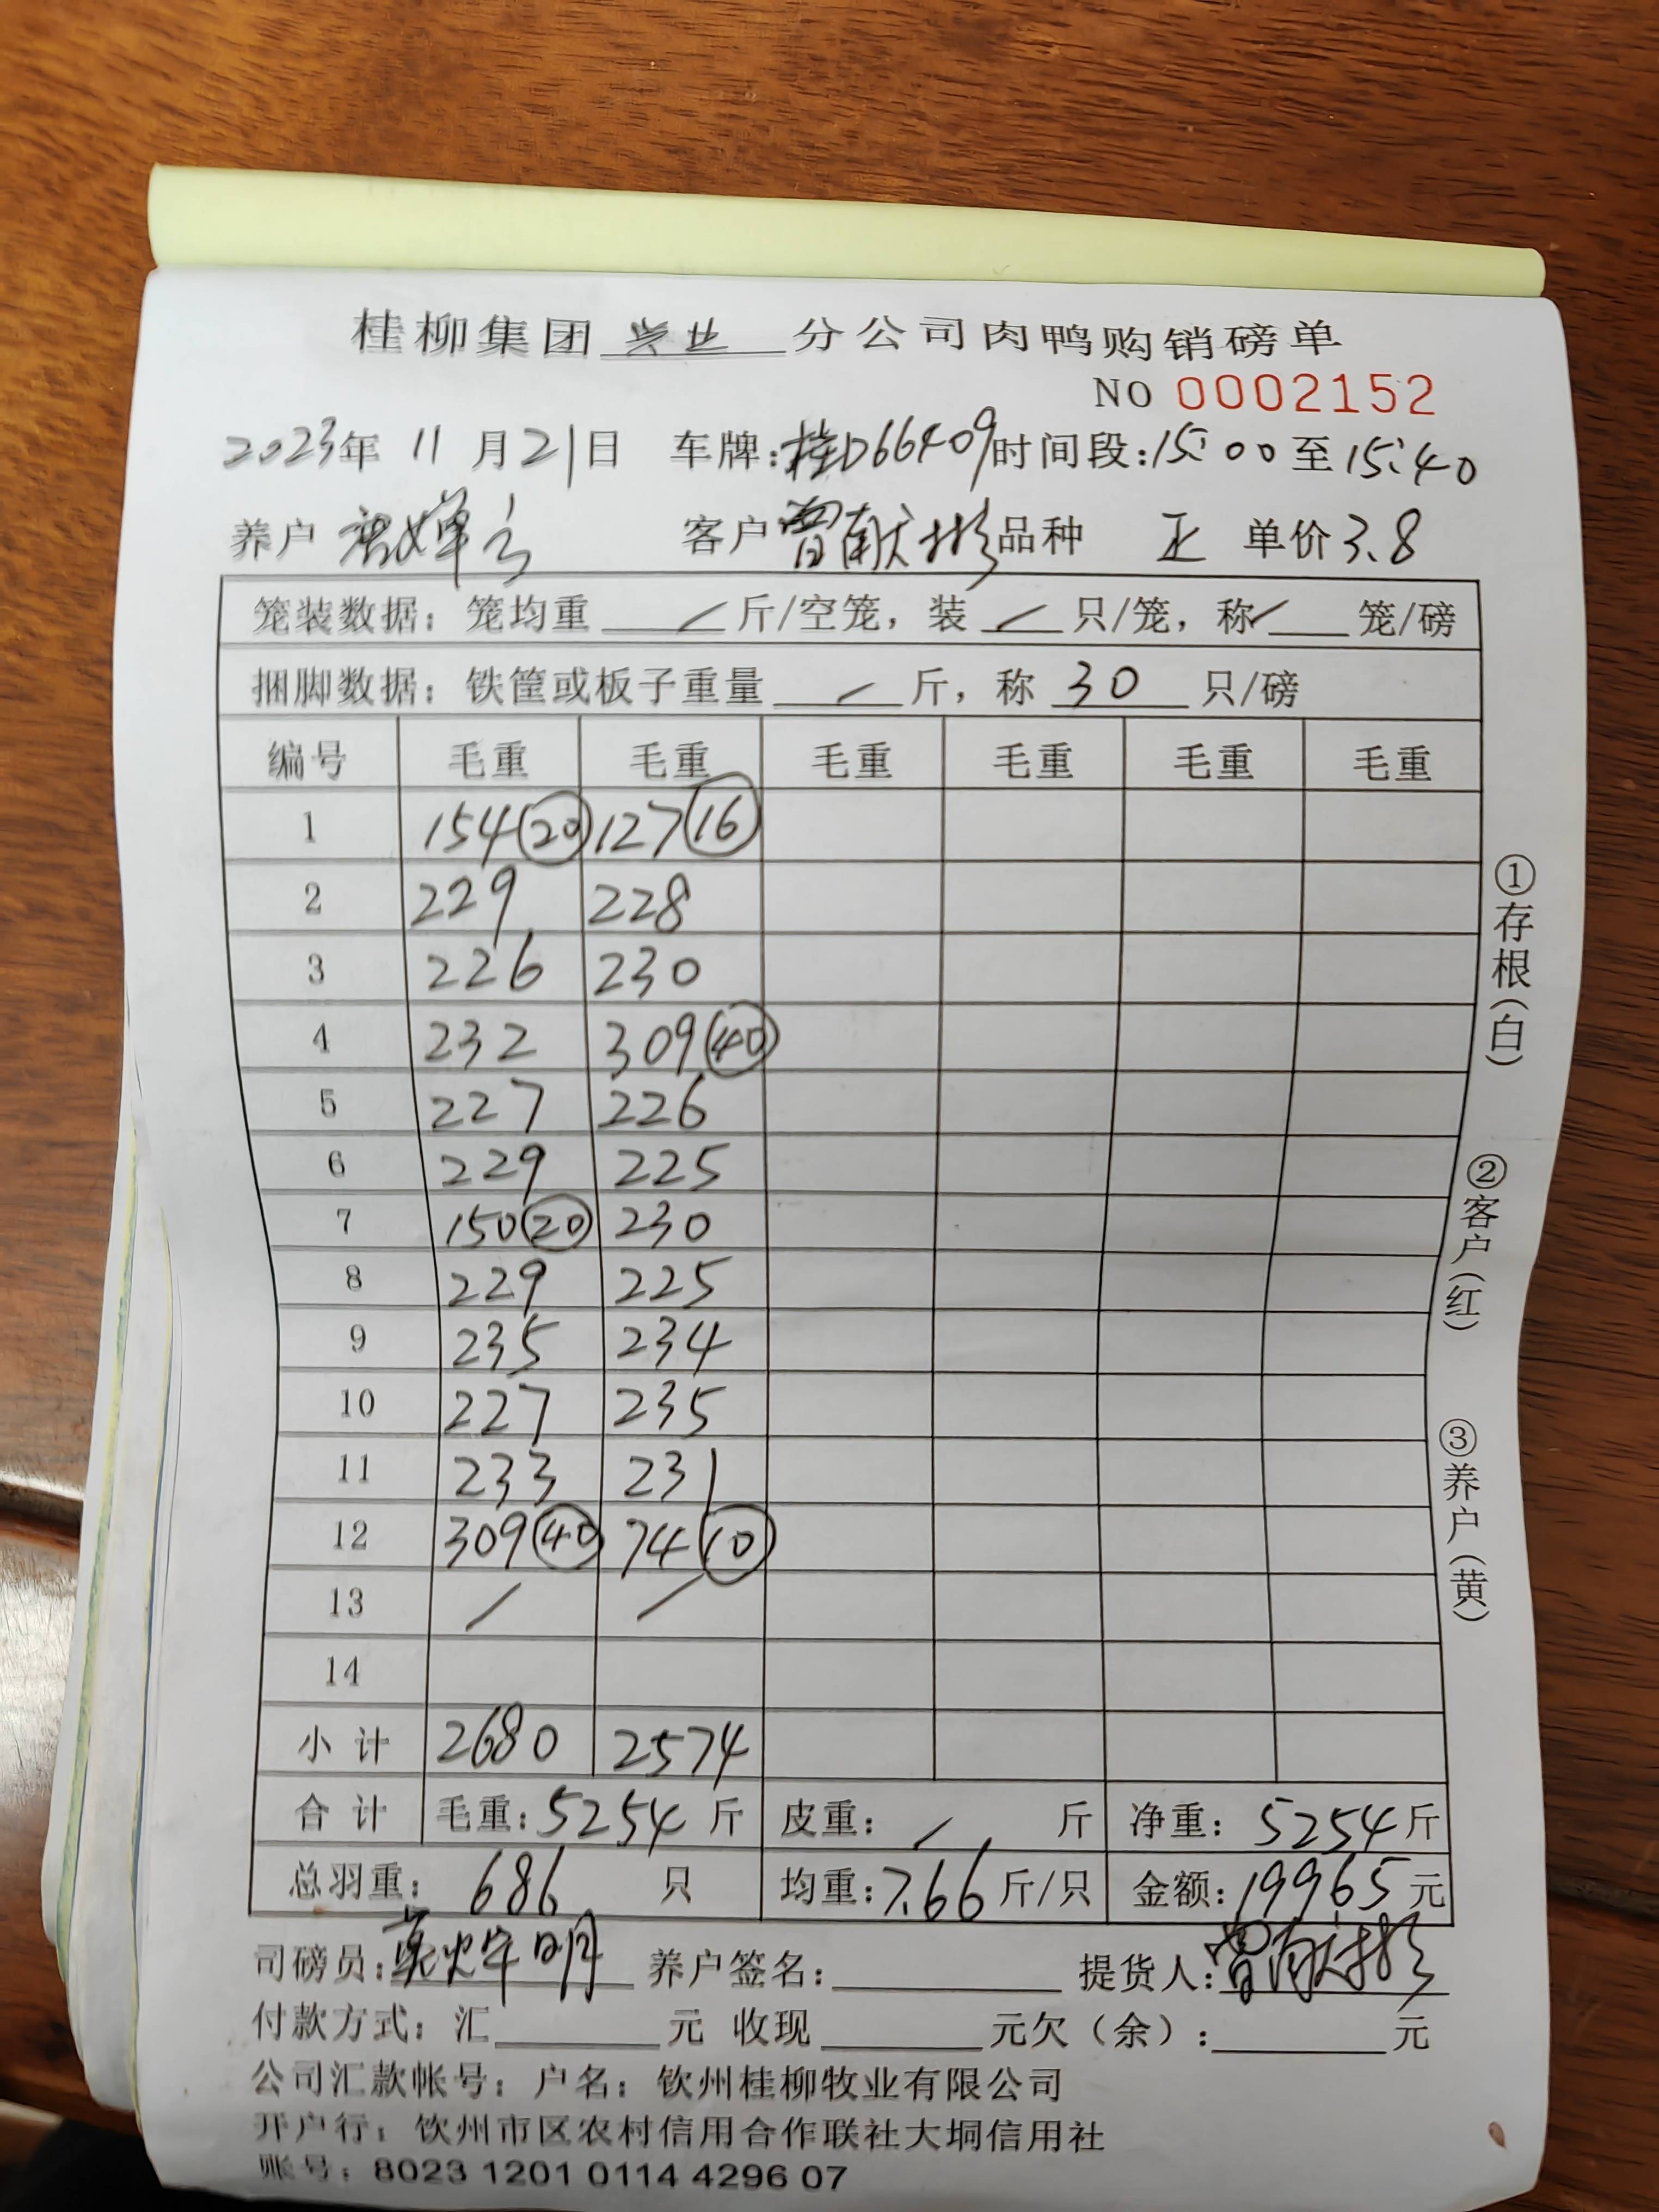 桂柳集团 兴业 分公司肉鸭购销磅单
NO 0002152
2023年 11 月21日 车牌:桂D66409时间段:15:00至15:40
养户 客户 曾献彬 品种 正 单价3.8
笼装数据: 笼均重 / 斤/空笼, 装 / 只/笼, 称 / 笼/磅
捆脚数据: 铁筐或板子重量 / 斤, 称 30 只/磅
编号 毛重 毛重 毛重 毛重 毛重 毛重
1 154(20) 127(16)
2 229 228
3 226 230
4 232 309(40)
5 227 226
6 229 225
7 150(20) 230
8 229 225
9 235 234
10 227 235
11 233 231
12 309(40) 74(10)
13 / /
14
小计 2680 2574
合计 毛重: 5254 斤 皮重: / 斤 净重: 5254斤
总羽重: 686 只 均重:7.66斤/只 金额:19965元
司磅员: 养户签名: 提货人:曾献彬
付款方式: 汇 元 收现 元欠(余): 元
公司汇款帐号: 户名: 钦州桂柳牧业有限公司
开户行: 钦州市区农村信用合作联社大垌信用社
账号: 8023 1201 0114 4296 07
①存根(白)
②客户(红)
③养户(黄)